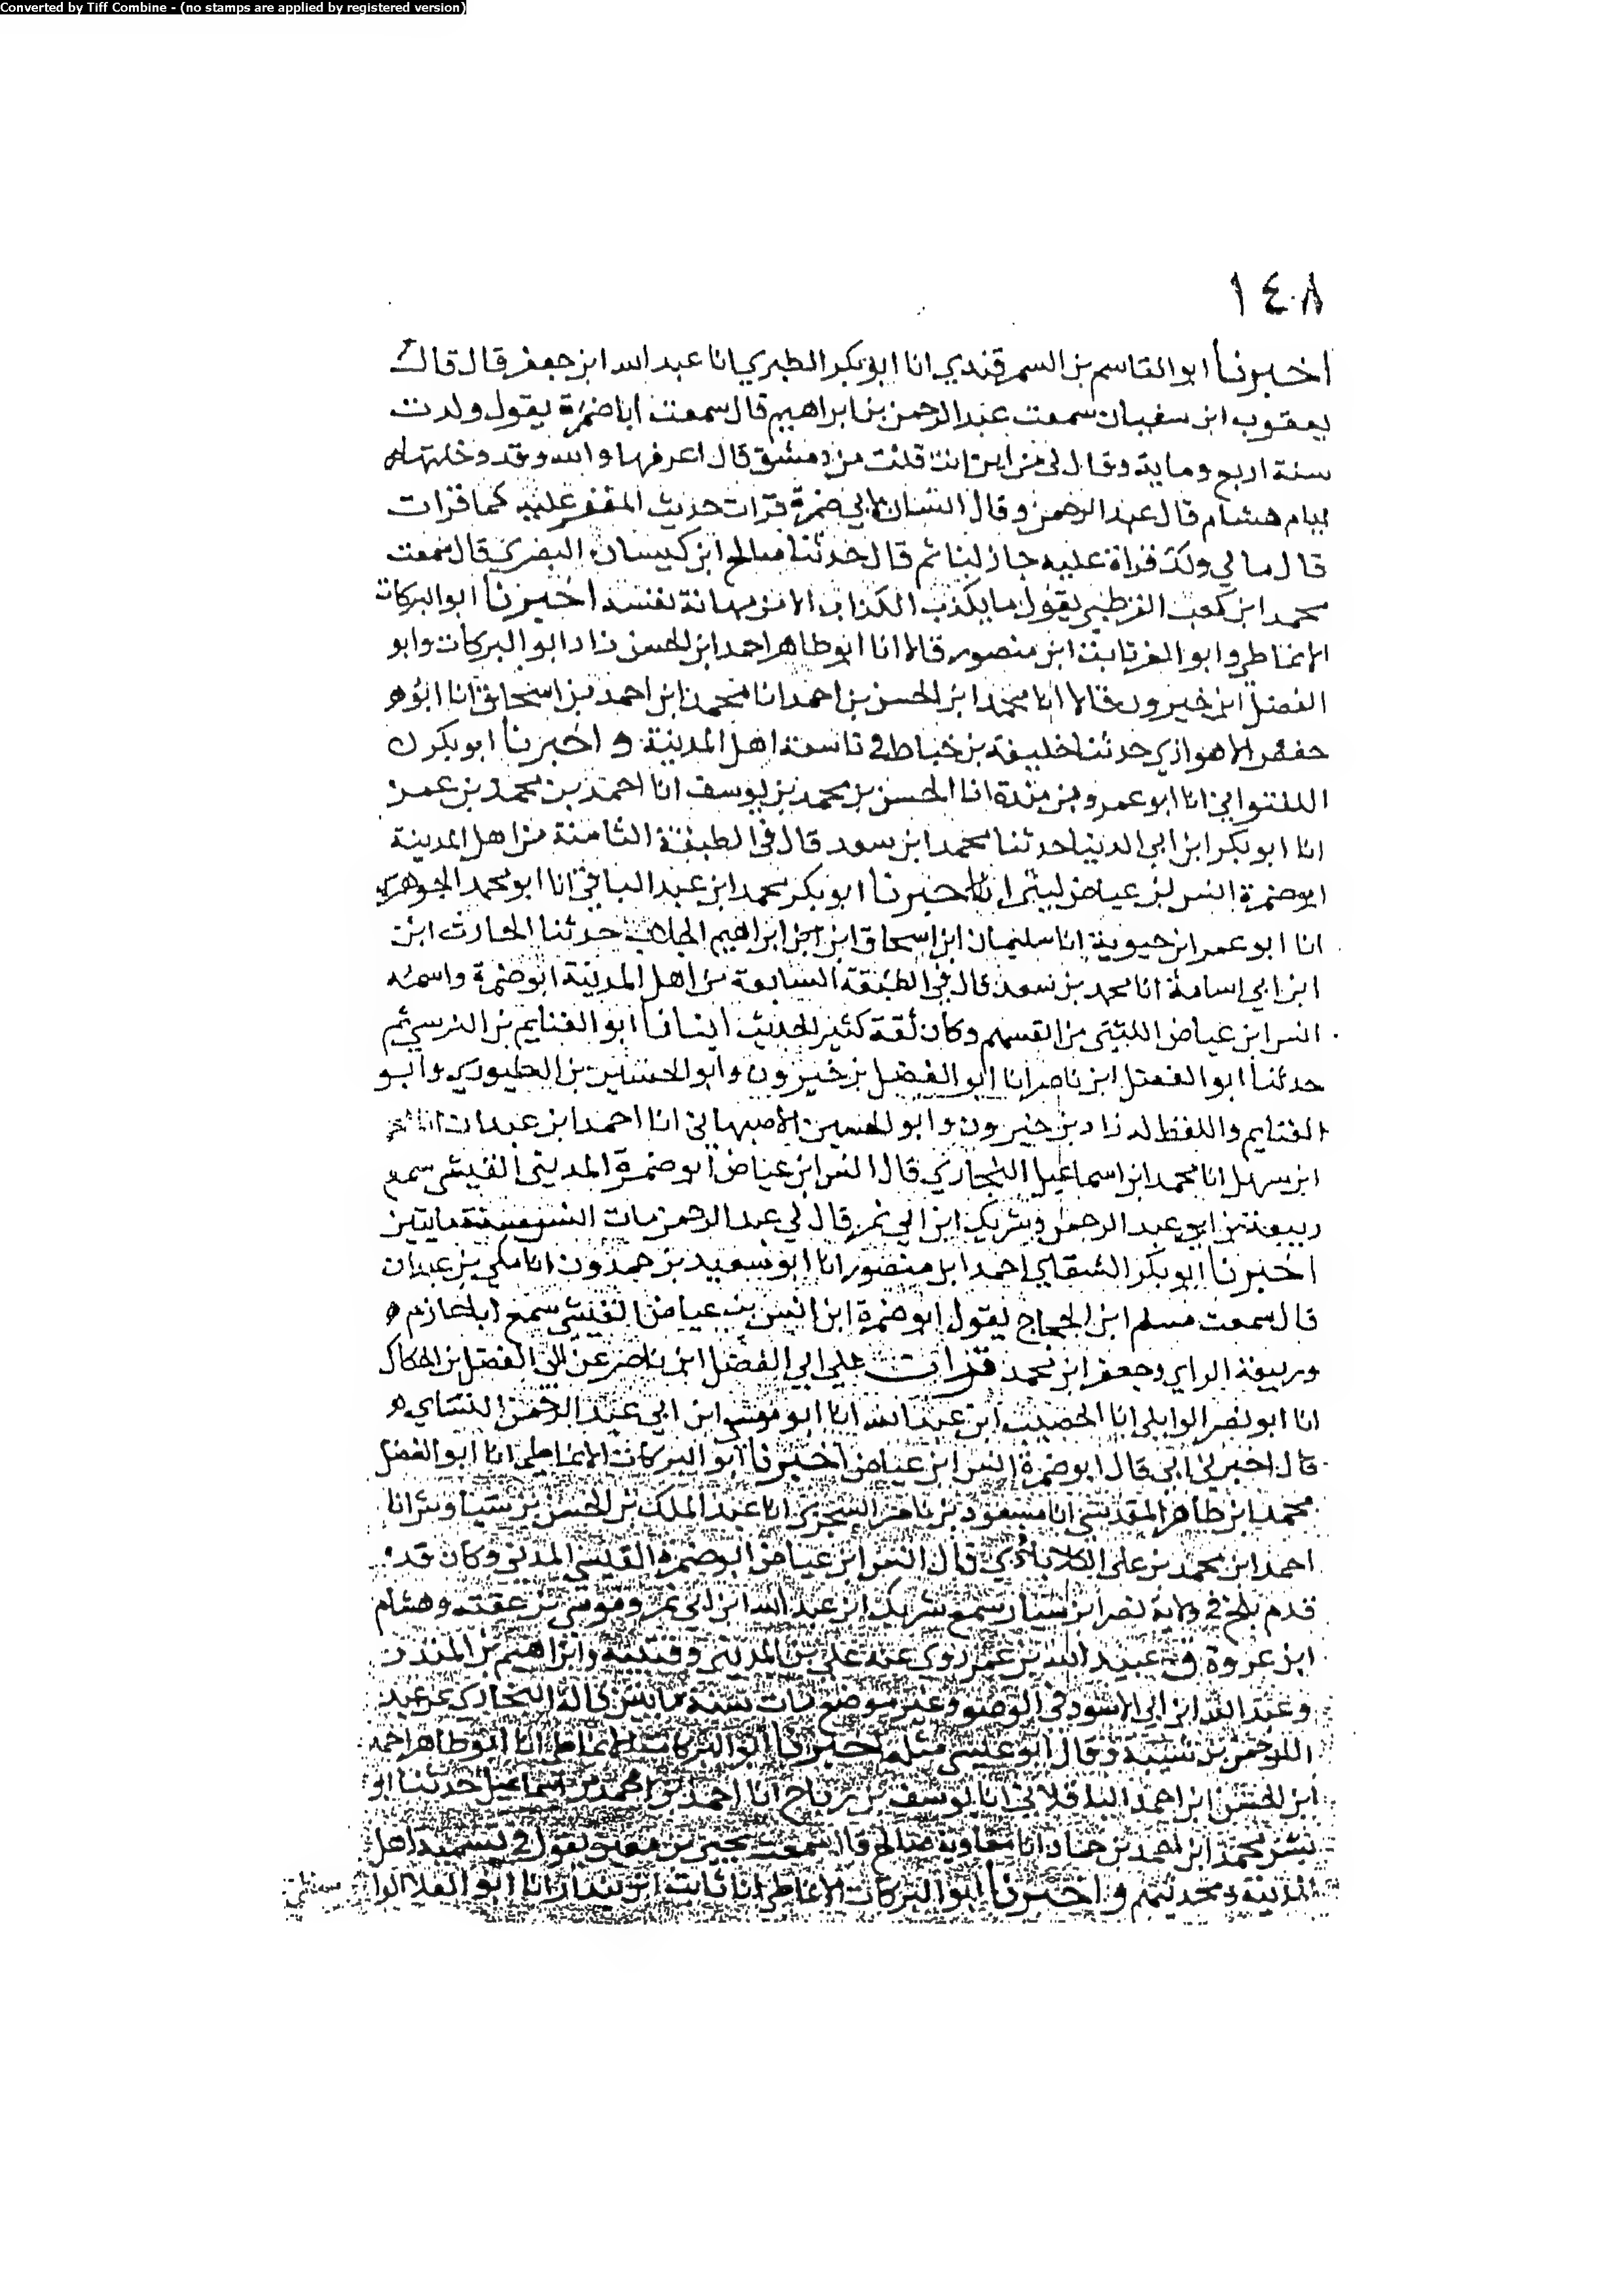 Converted by Tiff Combine - (no stamps are applied by registered version)
١٤٠٨
اخبرنا ابو القاسم بن السمرقندي انا ابو بكر الطبري انا عبد الله ابن جعفر قال قال
يعقوب ابن سفيان سمعت عبد الرحمن بن ابراهيم قال سمعت ابا ضمرة يقول ولدت
سنة اربع وماية وقال لي من اين انت قلت من دمشق قال اعرفها والله وقد دخلتها
ايام هشام قال عبد الرحمن وقال انسان لابي ضمرة قرات حديث المغفر عليه كما قرات
قال مالي ولك قراة عليه جاز لنا ثم قال حدثنا صالح ابن كيسان البصري قال سمعت
محمد ابن كعب القرظي يقول ما يكذب الكذاب الا من مهانة نفسه اخبرنا ابو البركات
الانماطي وابو العز ثابت ابن منصور قالا انا ابو طاهر احمد ابن الحسن زاد ابو البركات وابو
الفضل ابن خيرون قالا انا محمد ابن الحسن بن احمد انا محمد ابن احمد بن اسحاق انا ابو
حفص الاهوازي حدثنا خليفة بن خياط في تاسعة اهل المدينة واخبرنا ابو بكر
اللفتواني انا ابو عمرو بن مندة انا الحسن بن محمد بن يوسف انا احمد بن محمد بن عمر
انا ابو بكر ابن ابي الدنيا حدثنا محمد ابن سعد قال في الطبقة الثامنة من اهل المدينة
ابو ضمرة انس ابن عياض ليثي اخبرنا ابو بكر محمد ابن عبد الباقي انا ابو محمد الجوهري
انا ابو عمر ابن حيوية انا سليمان ابن اسحاق ابن ابراهيم الجلاب حدثنا الحارث ابن
ابن ابي اسامة انا محمد بن سعد قال في الطبقة السابعة من اهل المدينة ابو ضمرة واسمه
انس ابن عياض الليثي من انفسهم وكان ثقة كثير الحديث انبانا ابو الغنايم بن النرسي ثم
حدثنا ابو الفضل ابن ناصر انا ابو الفضل بن خيرون وابو الحسين بن الطيوري وابو
الغنايم واللفظ له زاد بن خيرون وابو الحسين الاصبهاني انا احمد ابن عبدان انا
ابن سهل انا محمد ابن اسماعيل البخاري قال انس ابن عياض ابو ضمرة المديني الليثي سمع
ربيعة بن ابي عبد الرحمن وشريك ابن ابي نمر قال لي عبد الرحمن مات انس سنة مايتين
اخبرنا ابو بكر الشقاني احمد ابن منصور انا ابو سعيد بن حمدون انا مكي بن عبدان
قال سمعت مسلم ابن الحجاج يقول ابو ضمرة ابن انس بن عياض الليثي سمع ابا حازم
وربيعة الراي وجعفر ابن محمد قرات علي ابي الفضل ابن ناصر عن ابي الفضل ابن الحكاك
انا ابو نصر الوايلي انا الخصيب ابن عبد الله انا ابو موسى ابن ابي عبد الرحمن النساي
قال اخبرني ابي قال ابو ضمرة انس ابن عياض اخبرنا ابو البركات الانماطي انا ابو الفضل
محمد ابن طاهر المقدسي انا مسعود بن ناصر السجزي انا عبد الملك بن الحسن بن سياوش انا
احمد ابن محمد بن علي الكلاباذي قال انس ابن عياض ابو ضمرة الليثي المدني وكان قد
قدم بلخ في ولاية نصر ابن سيار سمع شريك ابن عبد الله ابن ابي نمر وموسى بن عقبة وهشام
ابن عروة وعبيد الله بن عمر روى عنه علي بن المديني وقتيبة وابراهيم بن المنذر
وعبد الله ابن ابي الاسود في الوضو وغير موضع مات سنة مايتين قاله البخاري عن عبد
الرحمن بن شيبة وقال ابو عيسى مثله اخبرنا ابو البركات الانماطي انا ابو طاهر احمد
ابن الحسن ابن احمد الباقلاني انا يوسف بن رباح انا احمد بن محمد بن اسماعيل حدثنا ابو
بشر محمد ابن احمد بن حماد انا معاوية صالح قال سمعت يحيى بن معين يقول في تسمية اهل
المدينة ومحدثيهم واخبرنا ابو البركات الانماطي انا ثابت ابن بندار انا ابو العلا الواسطي